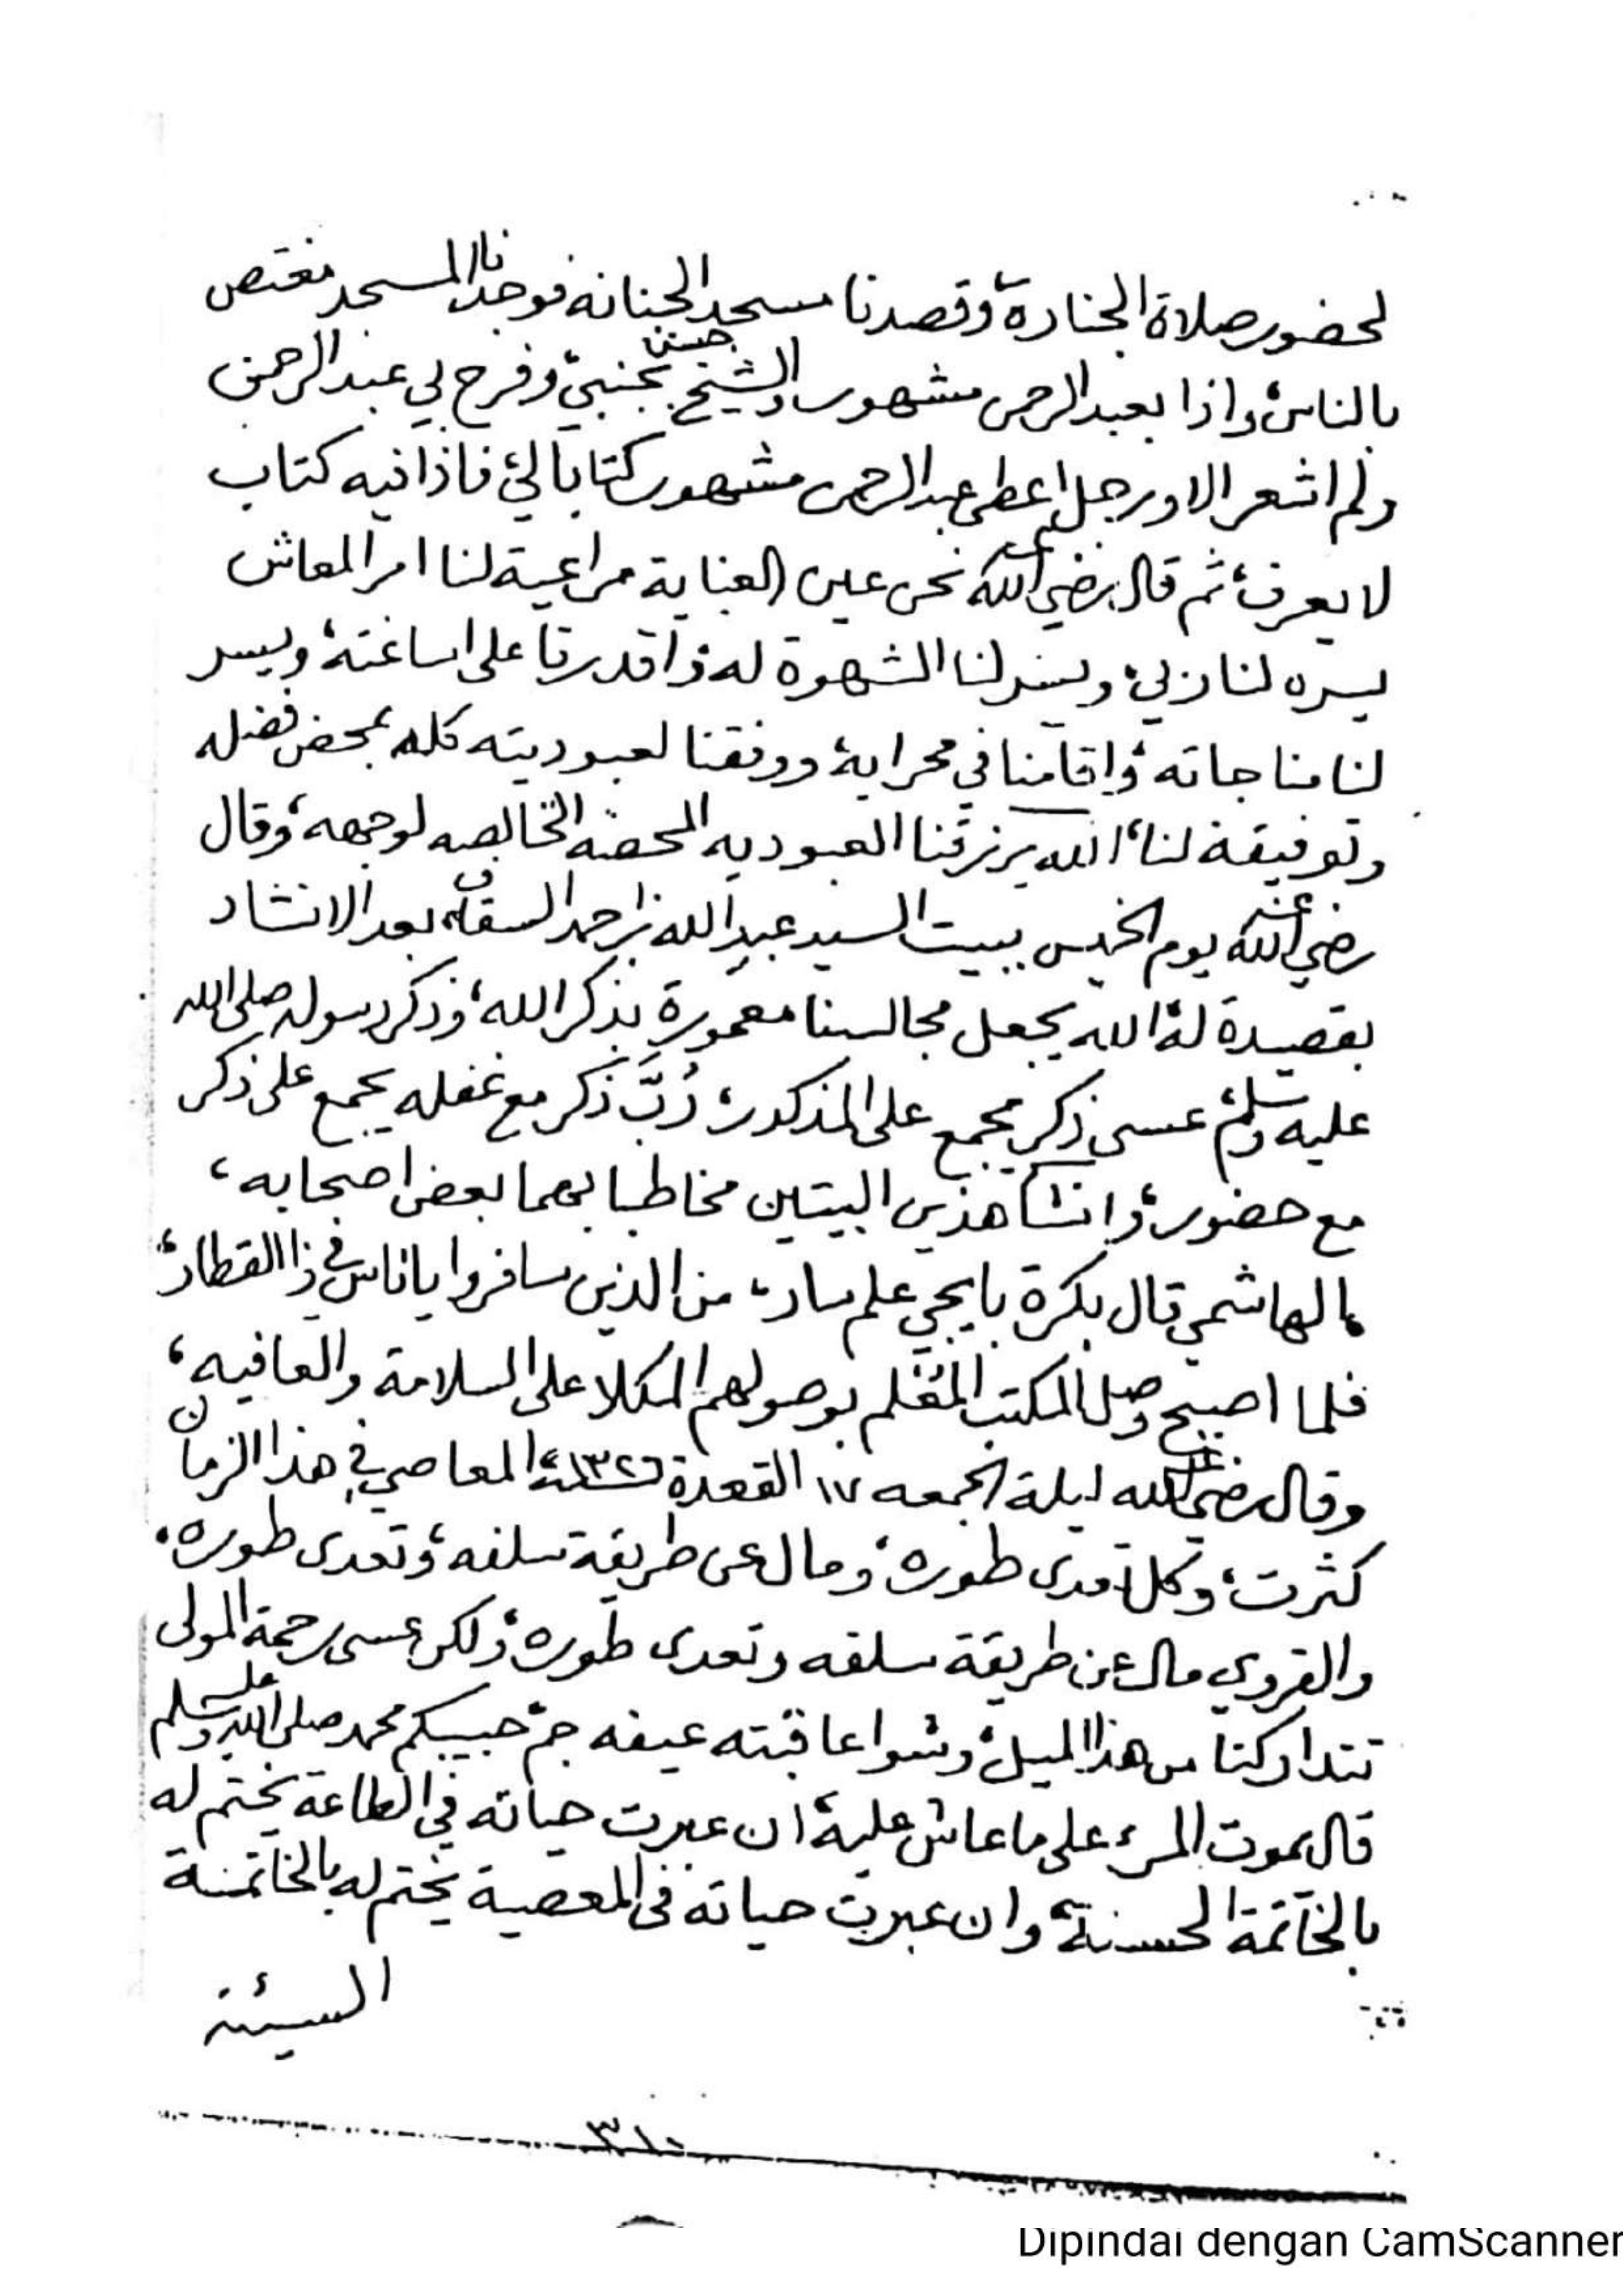 لحضور صلاة الجنازة، وقصدنا مسجد الجبانه فوجدنا المسجد مغتص
بالناس، واذا بعبدالرحمن مشهور والشيخ حسن بجنبي، وفرح بي عبدالرحمن
ولم اشعر الا ورجل اعطى عبدالرحمن مشهور كتابا لي، فاذا فيه كتاب
لا يعرف، ثم قال رضي الله عنه نحن عين العناية مراعية لنا امر المعاش
يسره لنا ربي، ويسر لنا الشهوة له واقدرنا على اساغته، ويسر
لنا مناجاته، واقامنا في محرابه، ووفقنا لعبوديته كله بمحض فضله
وتوفيقه لنا، الله يرزقنا العبوديه المحضه الخالصه لوجهه، وقال
رضي الله عنه يوم الخميس ببيت السيد عبدالله بن احمد السقاف بعد الانشاد
بقصيدة له، الله يجعل مجالسنا معمورة بذكر الله، وذكر رسوله صلى الله
عليه وسلم، عسى ذكر يجمع على المذكور، رُبَّ ذكر مع غفله يجمع على ذكر
مع حضور، وانشأ هذين البيتين مخاطبا بهما بعض اصحابه،
الهاشمي قال بكرة بايجي علم سار، من الذين سافروا ياناس في ذا القطار،
فلما اصبح وصل المكتب المعلم بوصولهم المكلا على السلامة والعافيه،
وقال رضي الله عنه ليلة الجمعه ١٧ القعدة ١٣٢٦ المعاصي في هذا الزمان
كثرت، وكل تعدى طوره، ومال عن طريقة سلفه، وتعدى طوره،
والقروي مال عن طريقة سلفه وتعدى طوره، ولكن عسى رحمة المولى
تتداركنا من هذا الميل، وشوا عاقبته عيفه جم، حبيبكم محمد صلى الله عليه وسلم
قال يموت المرء على ما عاش عليه، ان عبرت حياته في الطاعة يختم له
بالخاتمة الحسنة، وان عبرت حياته في المعصية يختم له بالخاتمة
السيئه
٣١٠
Dipindai dengan CamScanner